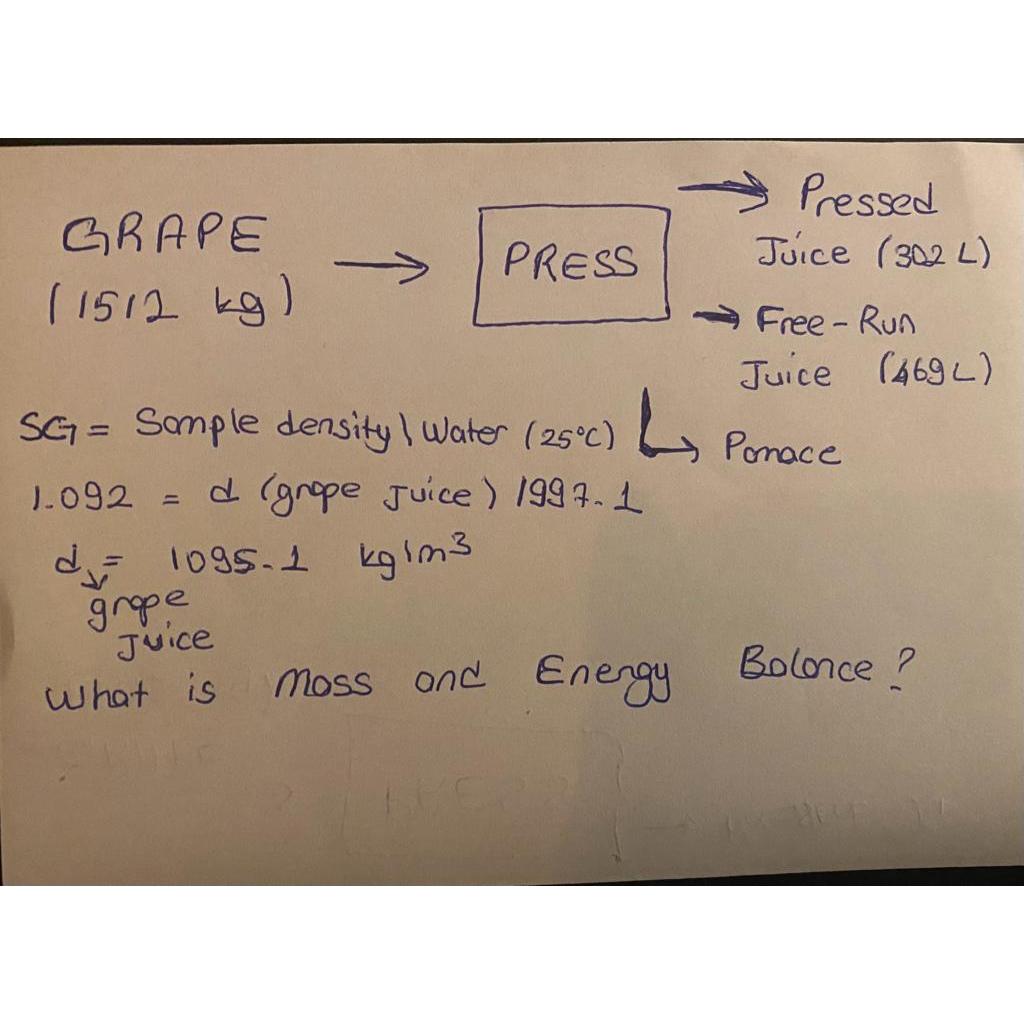 GRAPE
(1512 kg)
PRESS
Pressed
Juice (302 L)
Free-Run
Juice (469 L)
Pomace
SG = Sample density \ Water (25°C)
1.092 = d (grape juice) / 997.1
d = 1095.1 kg/m³
grape
juice
What is Mass and Energy Balance?